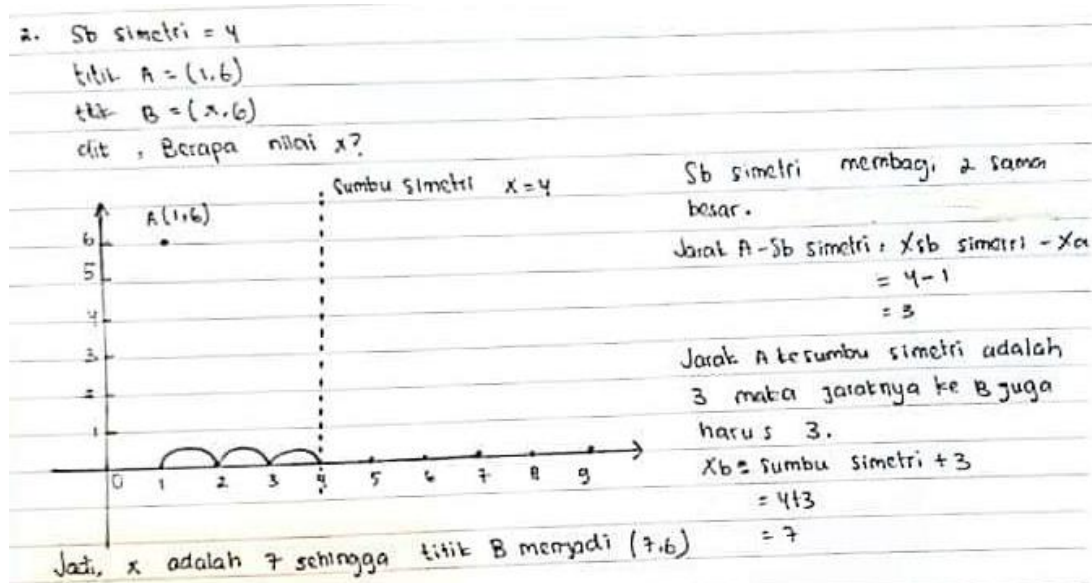 2. Sb simetri = 4
titik A = (1,6)
titik B = (x,6)
dit , Berapa nilai x?
Sumbu simetri x = 4
A(1,6)
6
5
4
3
2
1
0 1 2 3 4 5 6 7 8 9
Sb simetri membagi 2 sama
besar.
Jarak A-Sb simetri = Xsb simetri - Xa
= 4-1
= 3
Jarak A ke sumbu simetri adalah
3 maka jaraknya ke B juga
harus 3.
Xb = Sumbu simetri + 3
= 4+3
= 7
Jadi, x adalah 7 sehingga titik B menjadi (7,6)